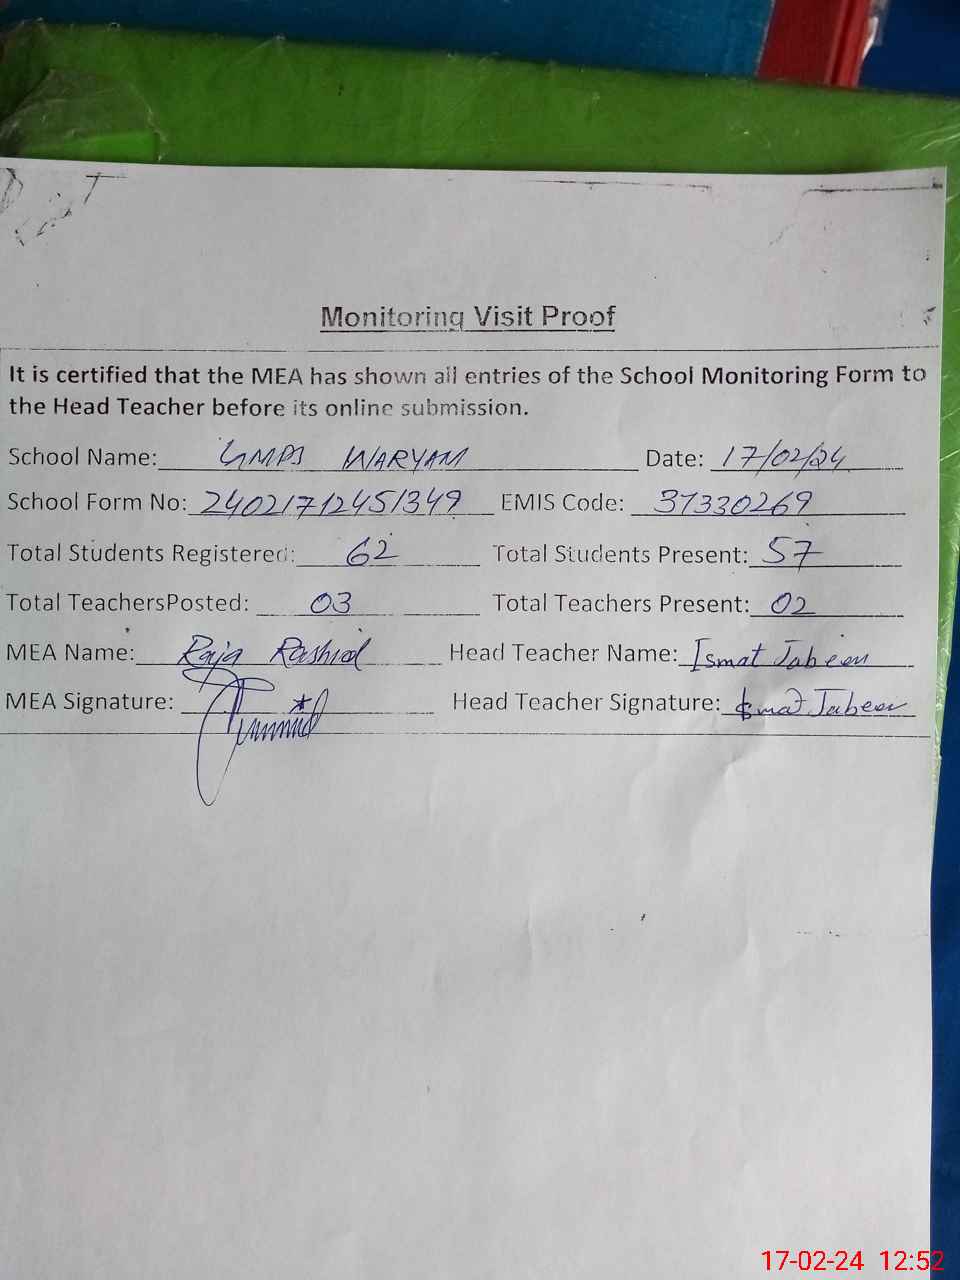 Monitoring Visit Proof
It is certified that the MEA has shown all entries of the School Monitoring Form to
the Head Teacher before its online submission.
School Name: GMPS WARYAM Date: 17/02/24
School Form No: 24021712451349 EMIS Code: 37330269
Total Students Registered: 62 Total Students Present: 57
Total TeachersPosted: 03 Total Teachers Present: 02
MEA Name: Raja Rashid Head Teacher Name: Ismat Jabeen
MEA Signature: Head Teacher Signature: Ismat Jabeen
17-02-24 12:52